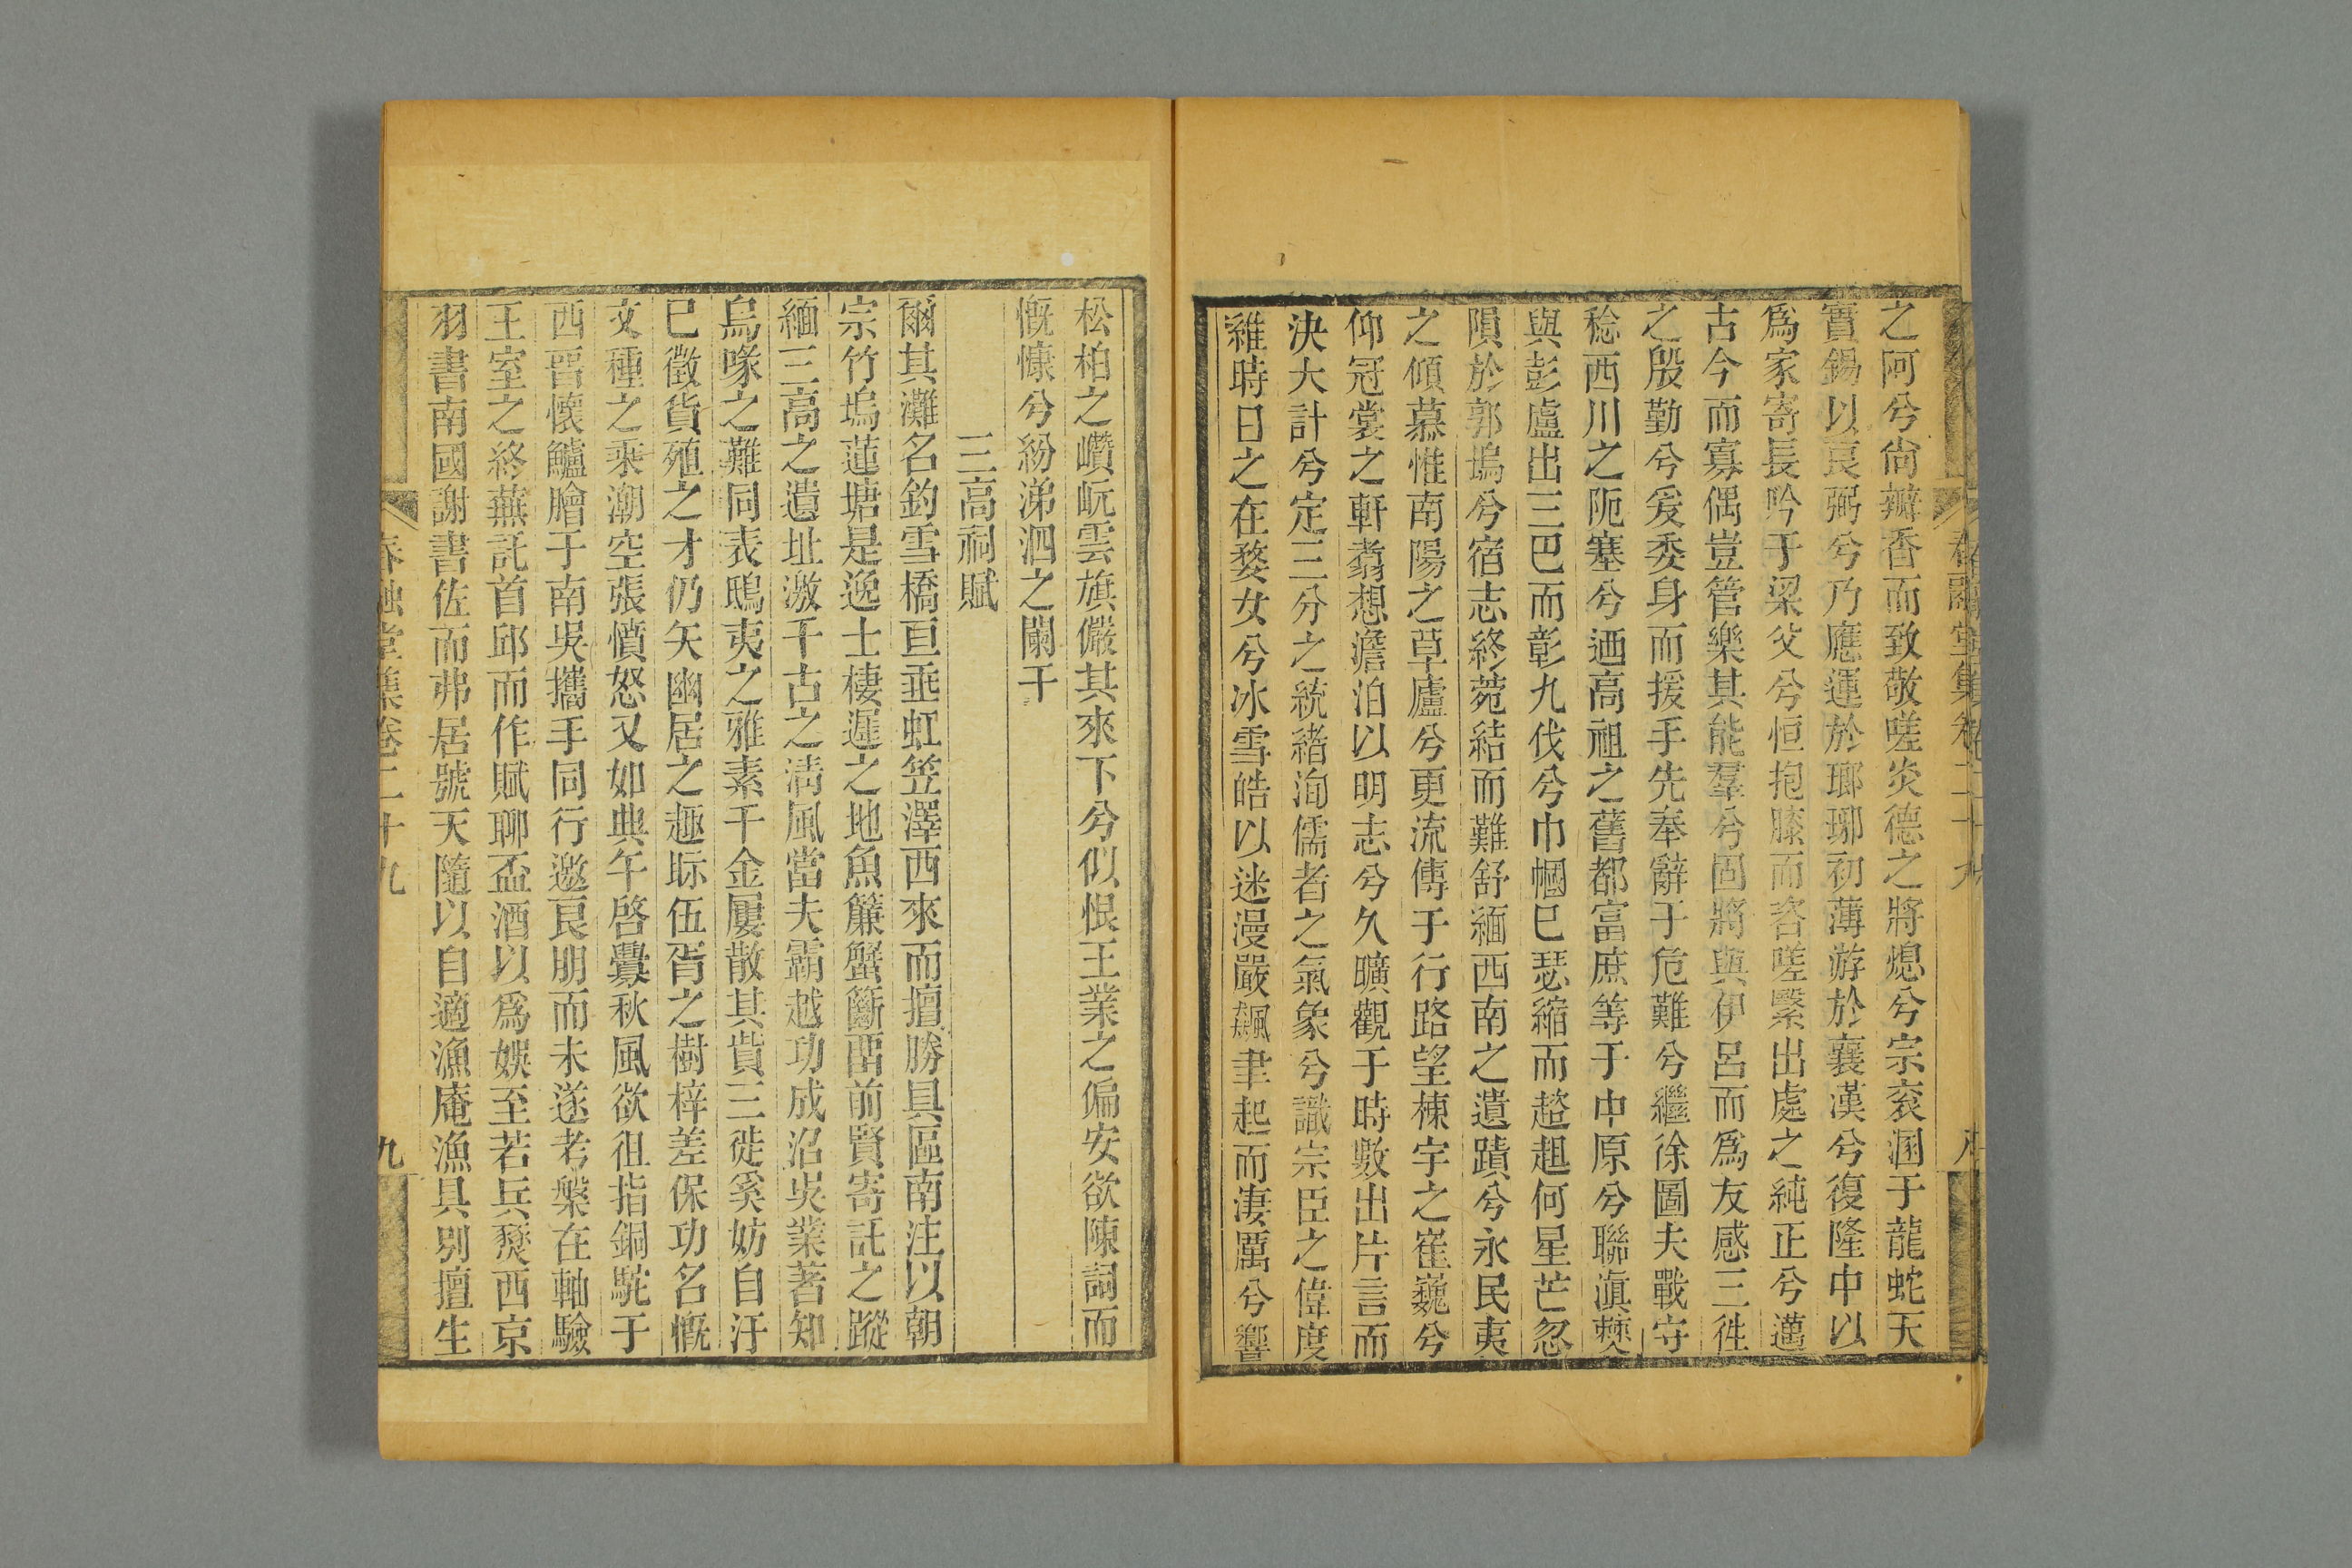 春融堂集卷二十九
八
之阿兮尙瓣香而致敬嗟炎德之將熄兮宗衮溷于龍蛇天
實錫以良弼兮乃應運於瑯琊初薄游於襄漢兮復隆中以
爲家寄長吟于梁父兮恒抱膝而咨嗟繄出處之純正兮邁
古今而寡偶豈管樂其能羣兮固將與伊呂而爲友感三徃
之殷勤兮爰委身而援手先奉辭于危難兮繼徐圖夫戰守
稔西川之阨塞兮迺高祖之舊都富庶等于中原兮聯滇僰
與彭盧出三巴而彰九伐兮巾幗已瑟縮而趑趄何星芒忽
隕於郭塢兮宿志終菀結而難舒緬西南之遺蹟兮永民夷
之傾慕惟南陽之草廬兮更流傳于行路望棟宇之崔巍兮
仰冠裳之軒翥想澹泊以明志兮久曠觀于時數出片言而
決大計兮定三分之統緒洵儒者之氣象兮識宗臣之偉度
維時日之在婺女兮冰雪皓以迷漫嚴飆聿起而淒厲兮響
松柏之巑岏雲旗儼其來下兮似恨王業之偏安欲陳詞而
慨慷兮紛涕泗之闌干
三高祠賦
爾其灘名釣雪橋亘垂虹笠澤西來而擅勝具區南注以朝
宗竹塢蓮塘是逸士棲遲之地魚簾蟹籪畱前賢寄託之蹤
緬三高之遺址激千古之淸風當夫霸越功成沼吳業著知
烏喙之難同表鴟夷之雅素千金屢散其貲三徙奚妨自汙
已徵貨殖之才仍矢幽居之趣眎伍胥之樹梓差保功名慨
文種之乘潮空張憤怒又如典午啓釁秋風欲徂指銅駝于
西晋懷鱸膾于南吳攜手同行邀良朋而未遂考槃在軸驗
王室之終蕪託首邱而作賦聊盃酒以爲娛至若兵燹西京
羽書南國謝書佐而弗居號天隨以自適漁庵漁具別擅生
春融堂集卷二十九
九